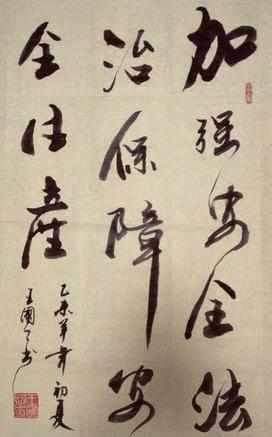 加强安全法
治保障安
全生産
乙未羊年初夏
王國书